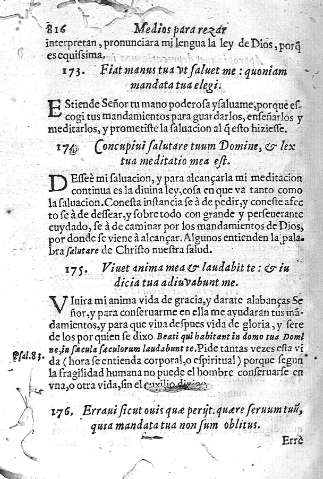 816 Medios para rezar
interpretan, pronunciara mi lengua la ley de Dios, porq̃
es equissima.
173. Fiat manus tua vt saluet me: quoniam
mandata tua elegi.
EStiende Señor tu mano poderosa y saluame, porque es-
cogi tus mandamientos para guardarlos, enseñarlos y
meditarlos, y prometiste la saluacion al q̃ esto hiziesse.
174. Concupiui salutare tuum Domine, & lex
tua meditatio mea est.
DEsseè mi saluacion, y para alcançarla mi meditacion
continua es la diuina ley, cosa en que va tanto como
la saluacion. Con esta instancia se à de pedir, y con este afec
to se à de dessear, y sobre todo con grande y perseuerante
cuydado, se à de caminar por los mandamientos de Dios,
por donde se viene à alcançar. Algunos entienden la pala-
bra salutare de Christo nuestra salud.
175. Viuet anima mea & laudabit te: & iu
dicia tua adiuvabunt me.
VIuira mi anima vida de gracia, y darate alabanças Se-
ñor, y para conseruarme en ella me ayudaran tus mã
damientos, y para que viua despues vida de gloria, y sere
de los por quien se dixo Beati qui habitant in domo tua Domi
psal.83. ne, in sæcula sæculorum laudabunt te. Pide tantas vezes esta vi
da (hora se entienda corporal, o espiritual) porque segun
la fragilidad humana no puede el hombre conseruarse en
vna, o otra vida, sin el auxilio diuino.
176. Erraui sicut ouis quæ perijt. quære seruum tuũ,
quia mandata tua non sum oblitus.
Errè